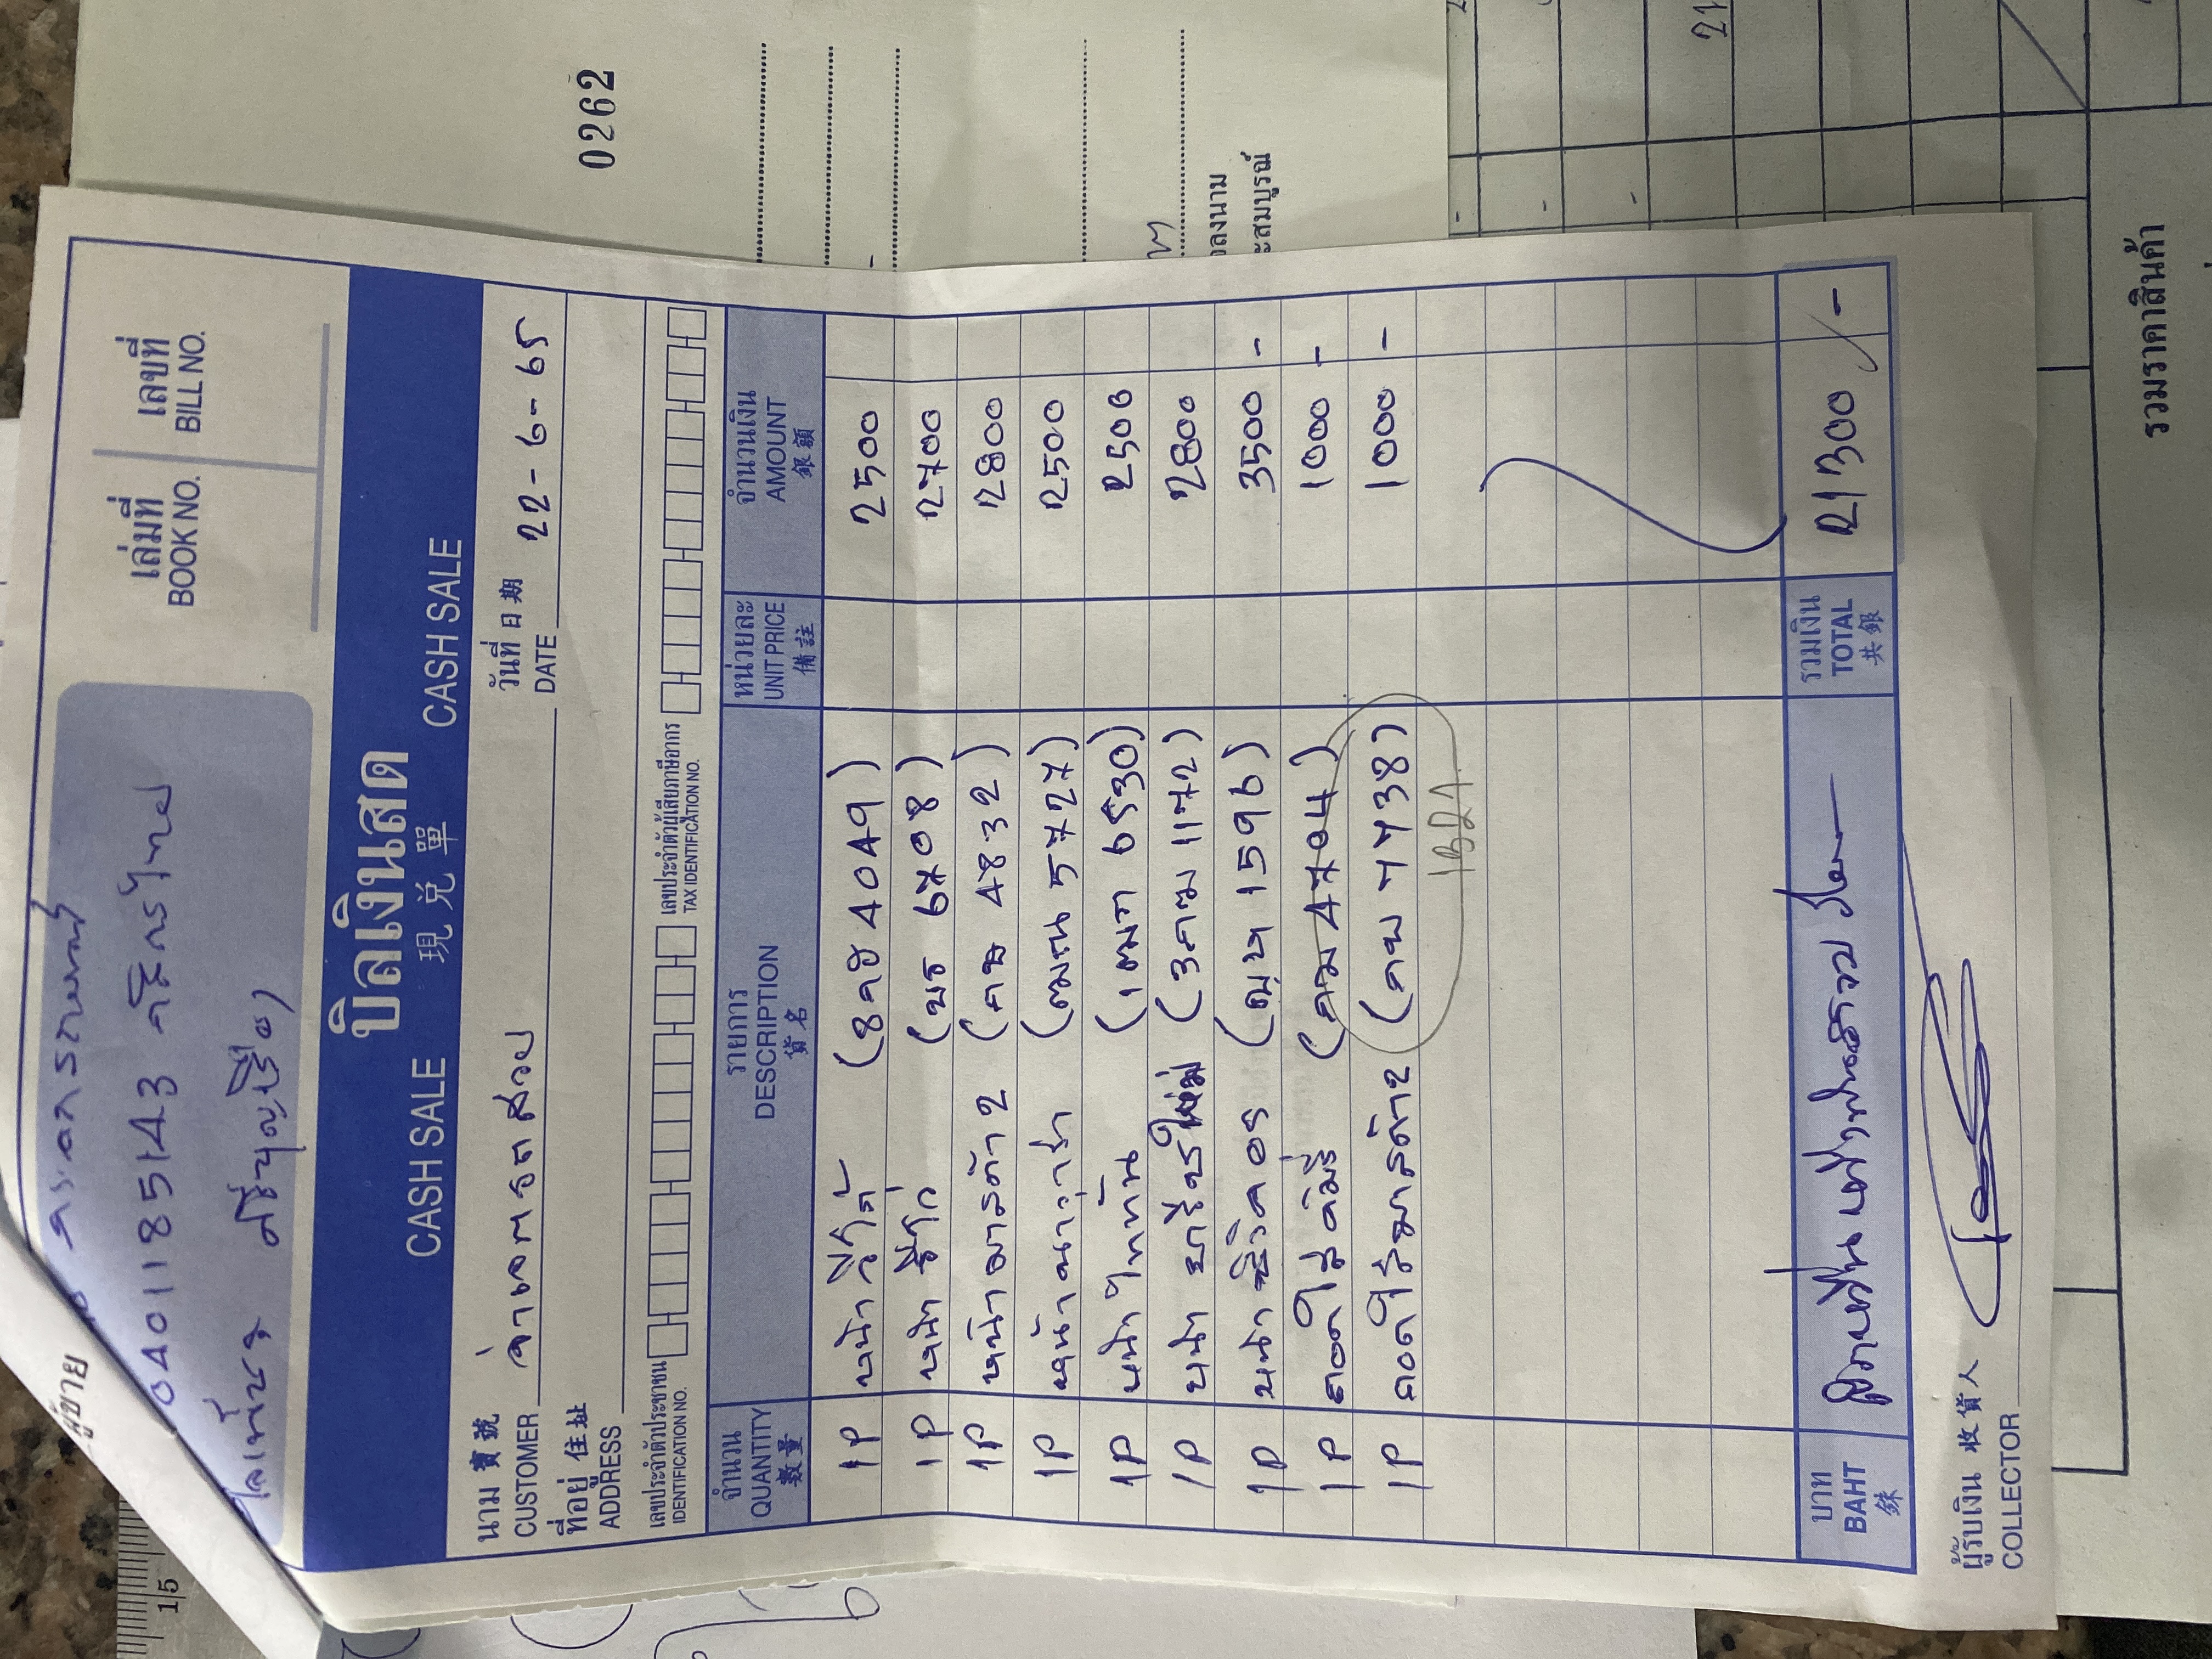 ผู้ขาย
0401185143 กสิกรไทย
เล่มที่ เลขที่
BOOK NO. BILL NO.
บิลเงินสด
CASH SALE 現兌單 CASH SALE
นาม 寶號
CUSTOMER จ่าเอกรถสวย
วันที่ 日期
DATE 22-6-65
ที่อยู่ 住址
ADDRESS
เลขประจำตัวประชาชน
IDENTIFICATION NO.
เลขประจำตัวผู้เสียภาษีอากร
TAX IDENTIFICATION NO.
จำนวน รายการ หน่วยละ จำนวนเงิน
QUANTITY DESCRIPTION UNIT PRICE AMOUNT
數量 貨名 備註 銀額
1P หน้าวีโก้ (8กธ 4049) 2500
1P หน้า (บร 6708) 2700
1P หน้ามาสด้า 2 (กษ 4832) 2800
1P หน้านาวาร่า (ฒณ 5727) 2500
1P หน้าไททัน (1ฒก 6530) 2500
1P หน้า ยาริสใหม่ (3กฒ 1172) 2800
1P หน้า (ญษ 1596) 3500 -
1P ถอดใส่คัมรี่ (กม 4704) 1000 -
1P ถอดใส่มาสด้า2 (กพ 7738) 1000 -
1B21
บาท
BAHT
銖
สองหมื่นหนึ่งพันสามร้อย
รวมเงิน
TOTAL
共銀
21300 -
ผู้รับเงิน 收貨人
COLLECTOR
0262
ลงนาม
ะสมบูรณ์
รวมราคาสินค้า
15